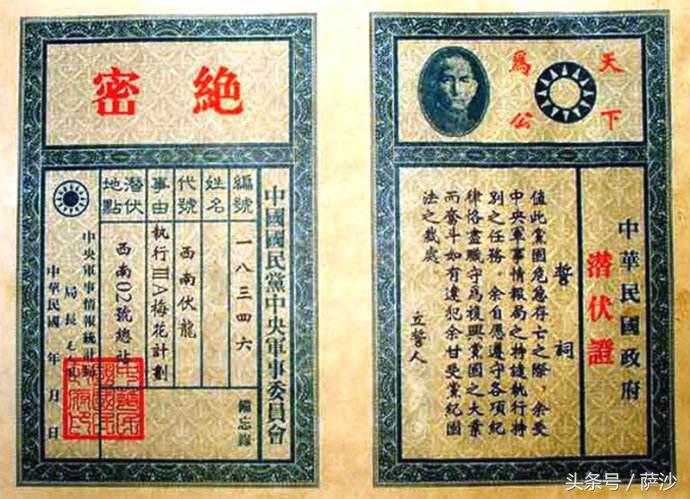 天下爲公
中華民國政府
潛伏證
誓詞
值此黨國危急存亡之際,余受
中央軍事情報局之特遣執行特
別之任務,余自愿遵守各項紀
律恪盡職守爲復興黨國之大業
而奋斗如有違犯余甘受黨紀國
法之裁處。
立誓人
絕密
中國國民黨中央軍事委員會
備忘錄
編號 一八三四六
姓名
代號 西南伏龍
事由 執行ⅢA梅花計劃
潛伏地點 西南02號總社
中央軍事情報統計局
局長
中華民國 年 月 日
头条号 / 萨沙